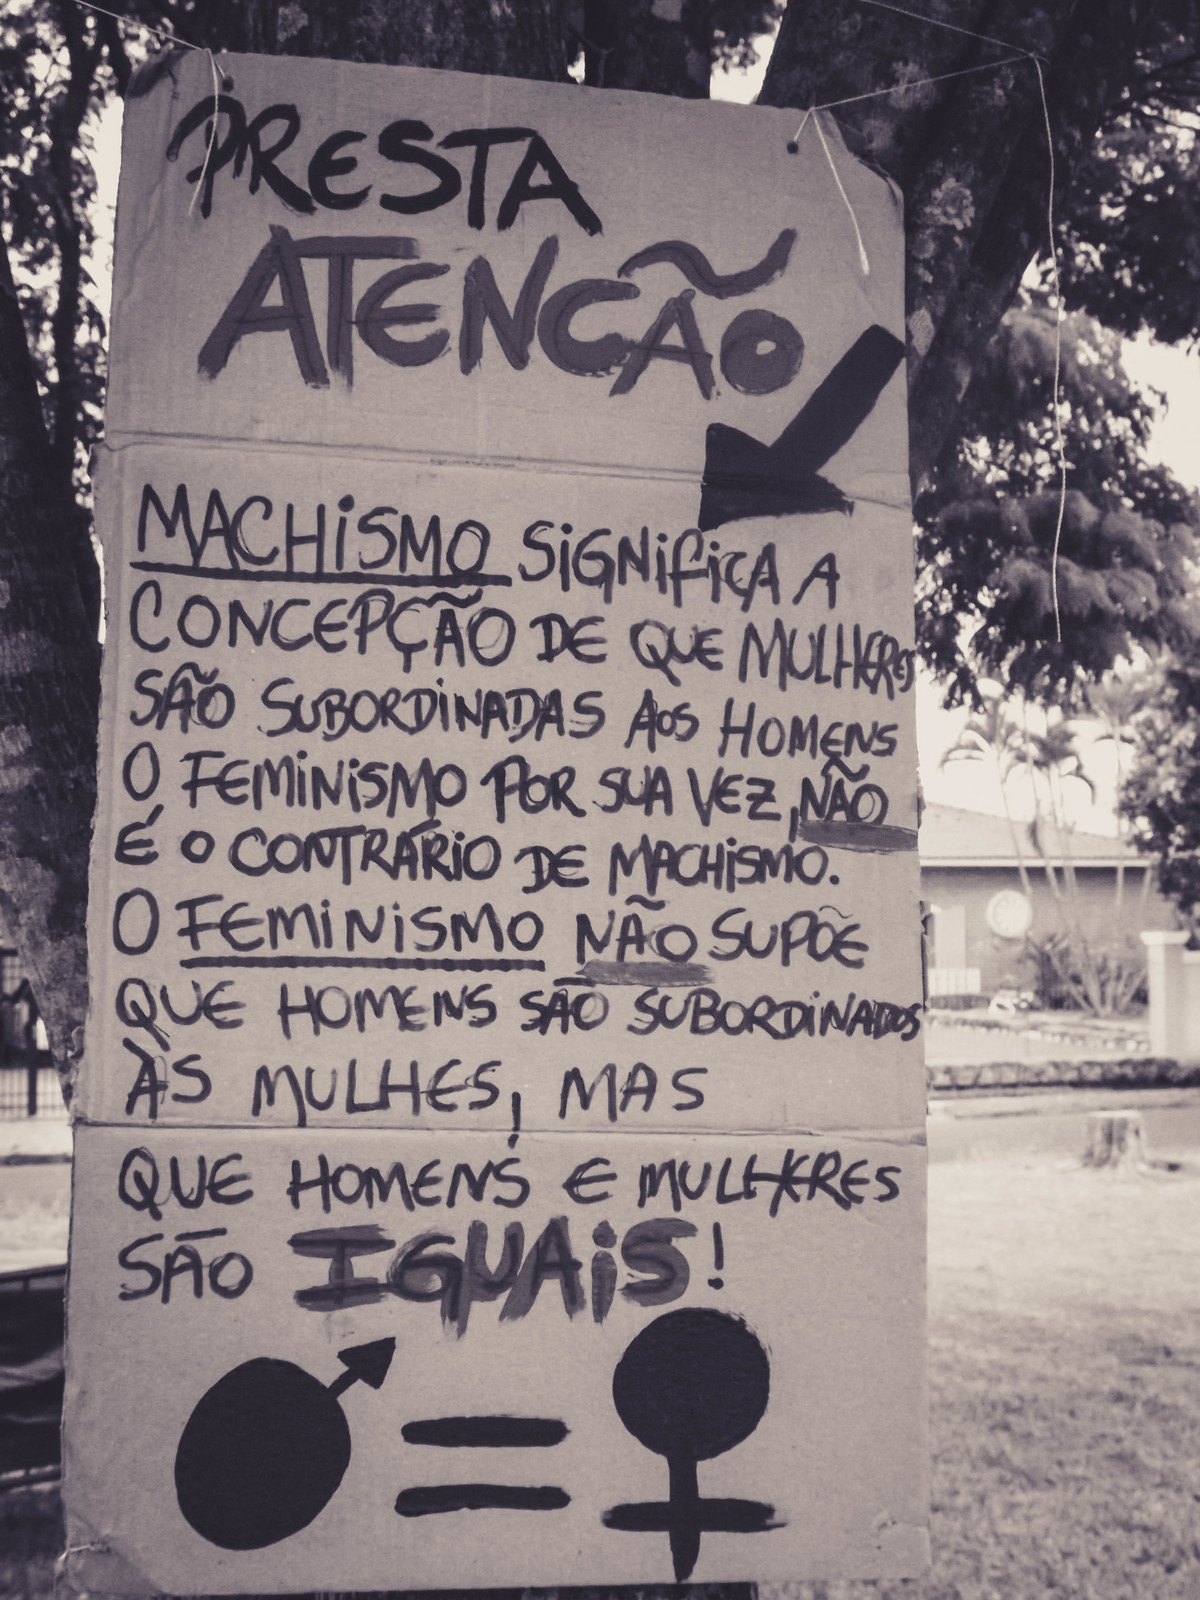 PRESTA
ATENCÃO
MACHISMO SIGNIFICA A
CONCEPÇÃO DE QUE MULHERES
SÃO SUBORDINADAS AOS HOMENS
O FEMINISMO POR SUA VEZ, NÃO
É O CONTRÁRIO DE MACHISMO.
O FEMINISMO NÃO SUPÕE
QUE HOMENS SÃO SUBORDINADOS
ÀS MULHES, MAS
QUE HOMENS E MULHERES
SÃO IGUAIS!
♂ = ♀